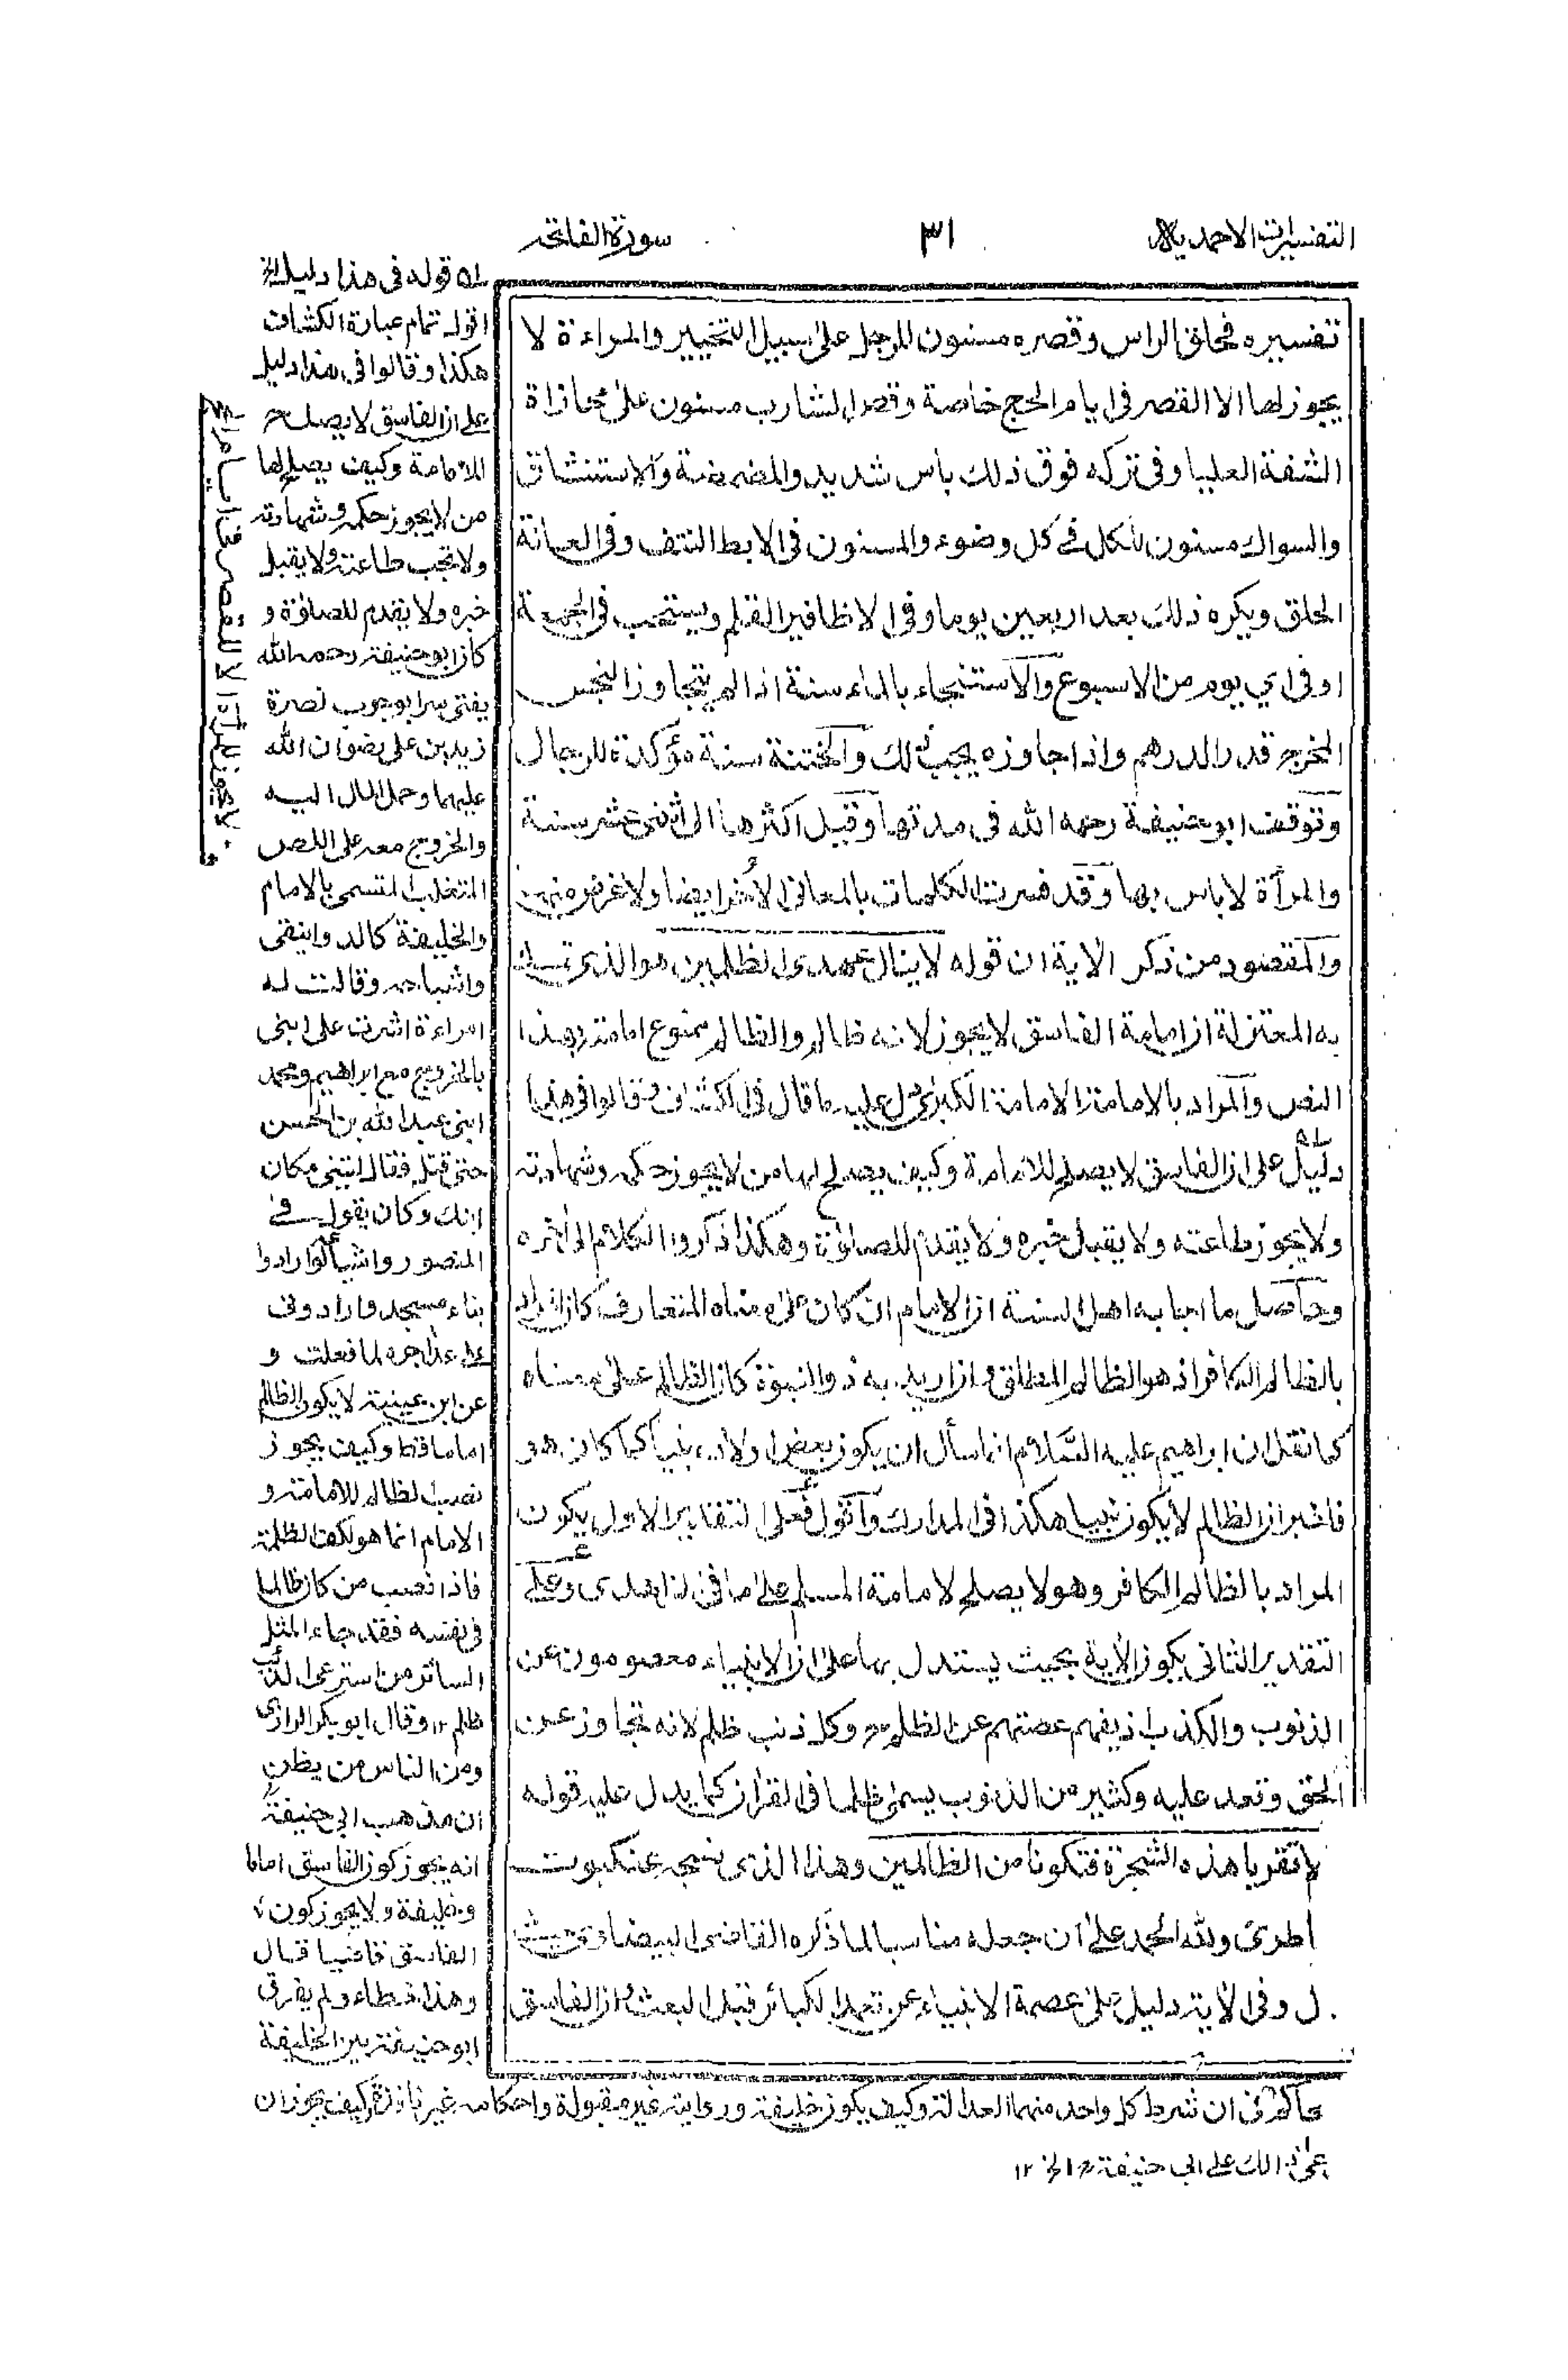 التفسيرات الاحمدية
٣١
سورة الفاتحة
تفسيره فحلق الراس وقصره مسنون للرجل على سبيل التخيير والمراءة لا
يجوز لها الا القصر فى ايام الحج خاصة وقص الشارب مسنون على محازاة
الشفة العليا وفى تركه فوق ذلك باس شديد والمضمضة والاستنشاق
والسواك مسنون للكل فى كل وضوء والمسنون فى الابط النتف وفى العانة
الحلق ويكره ذلك بعد اربعين يوما وفى الاظافير القلم ويستحب فى الجمعة
او فى اي يوم من الاسبوع والاستنجاء بالماء سنة اذا لم يتجاوز النجس
المخرج قدر الدرهم واذا جاوزه يجب ذلك والختنة سنة مؤكدة للرجال
وتوقف ابو حنيفة رحمه الله فى مدتها وقيل اكثرها اثنى عشر سنة
والمرآة لاباس بها وقد فسرت الكلمات بالمعانى الأخر ايضا ولا غرض منه
والمقصود من ذكر الاية ان قوله لا ينال عهدى الظلمين هو الذى تمسك
به المعتزلة ان امامة الفاسق لا يجوز لانه ظالم والظالم ممنوع امامته بهذا
النص والمراد بالامامة الامامة الكبرى يدل عليه ما قال فى الكشاف وقالوا فى هذا
دليل على ان الفاسق لا يصلح للامامة وكيف يصلح لها من لا يجوز حكمه وشهادته
ولا يجوز طاعته ولا يقبل خبره ولا يقدم للصلوٰة وهكذا ذكروا الكلام الى اخره
وحاصل ما اجابه اهل السنة ان الامام ان كان على معناه المتعارف كان المراد
بالظالم الكافر اذ هو الظالم المطلق وان اريد به ذو النبوة كان الظالم على معناه
كما نقل ان ابراهيم عليه السّلام انما سأل ان يكون بعض اولاده نبياً كما كان هو
فاخبر ان الظالم لا يكون نبيا هكذا فى المدارك وآقول فعلى التقدير الاول يكون
المراد بالظالم الكافر وهو لا يصلح لامامة المسلم على ما فى الزاهدى وعلى
التقدير الثانى يكون الآية بحيث يستدل بها على ان الانبياء معصومون عن
الذنوب والكذب اذ يفهم عصمتهم عن الظلم وكل ذنب ظلم لانه تجاوز عن
الحق وتعد عليه وكثير من الذنوب يسمى ظلما فى القراٰن كما يدل عليه قوله
لا تقربا هذه الشجرة فتكونا من الظالمين وهذا الذى نسجه عنكبوت
طرى ولله الحمد على ان جعله مناسبا لما ذكره القاضى البيضاوى حيث
ل وفى الآية دليل على عصمة الانبياء عن تعمد الكبائر قبل البعث وان الفاسق
سله قوله فى هذا دليل الخ
اقول تمام عبارة الكشاف
هكذا وقالوا فى هذا دليل
على ان الفاسق لا يصلح
للامامة وكيف يصلح لها
من لا يجوز حكمه وشهادته
ولا تجب طاعته ولا يقبل
خبره ولا يقدم للصلوٰة و
كان ابو حنيفة رحمه الله
يفتى سرا بوجوب نصرة
زيد بن على رضوان الله
عليهما وحمل المال اليه
والخروج معه على اللص
المتغلب المتسمى بالامام
والخليفة كالدوانيقى
واشباهه وقالت له
امراءة اشرت على ابنى
بالخروج مع ابراهيم ومحمد
ابنى عبد الله بن الحسن
حتى قتل فقال ليتنى مكان
ابنك وكان يقول فى
المنصور واشياعه لو ارادوا
بناء مسجد وارادونى
على عد اجره لما فعلت و
عن ابن عيينة لا يكون الظالم
اماما قط وكيف يجوز
نصب الظالم للامامة و
الامام انما هو لكف الظلمة
فاذا نصب من كان ظالما
فى نفسه فقد جاء المثل
السائر من استرعى الذئب
ظلم ١٢ وقال ابو بكر الرازى
ومن الناس من يظن
ان مذهب ابى حنيفة
انه يجوز كون الفاسق اماما
وخليفة ولا يجوز كون
الفاسق قاضيا قال
وهذا خطاء ولم يفرق
ابو حنيفة بين الخليفة
والحاكم فى ان شرط كل واحد منهما العدالة وكيف يكون خليفة وروايته غير مقبولة واحكامه غير نافذة وكيف يجوز ان
يدعى ذلك على ابى حنيفة الخ ١٢